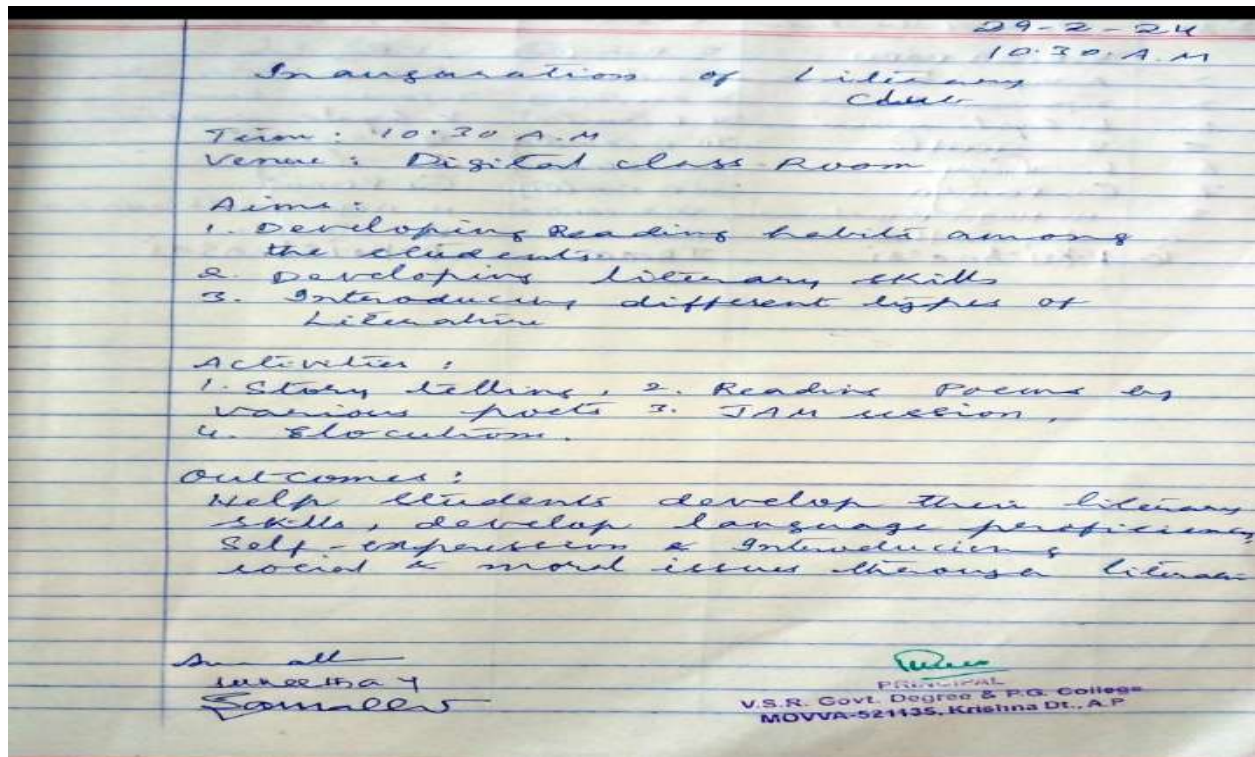 29-2-24
10.30.A.M
Inauguration of Literary
Club
Time : 10.30 A.M
Venue : Digital class Room
Aims :
1. Developing Reading habits among
the students
2. Developing literary skills
3. Introducing different types of
Literature
Activities :
1. Story telling, 2. Reading Poems by
various poets 3. JAM session,
4. Elocution.
Outcomes :
Help students develop their literary
skills, develop language proficiency,
Self-expression & Introducing
social & moral issues through
Suneetha Y
PRINCIPAL
V.S.R. Govt. Degree & P.G. College
MOVVA-521135, Krishna Dt., A.P